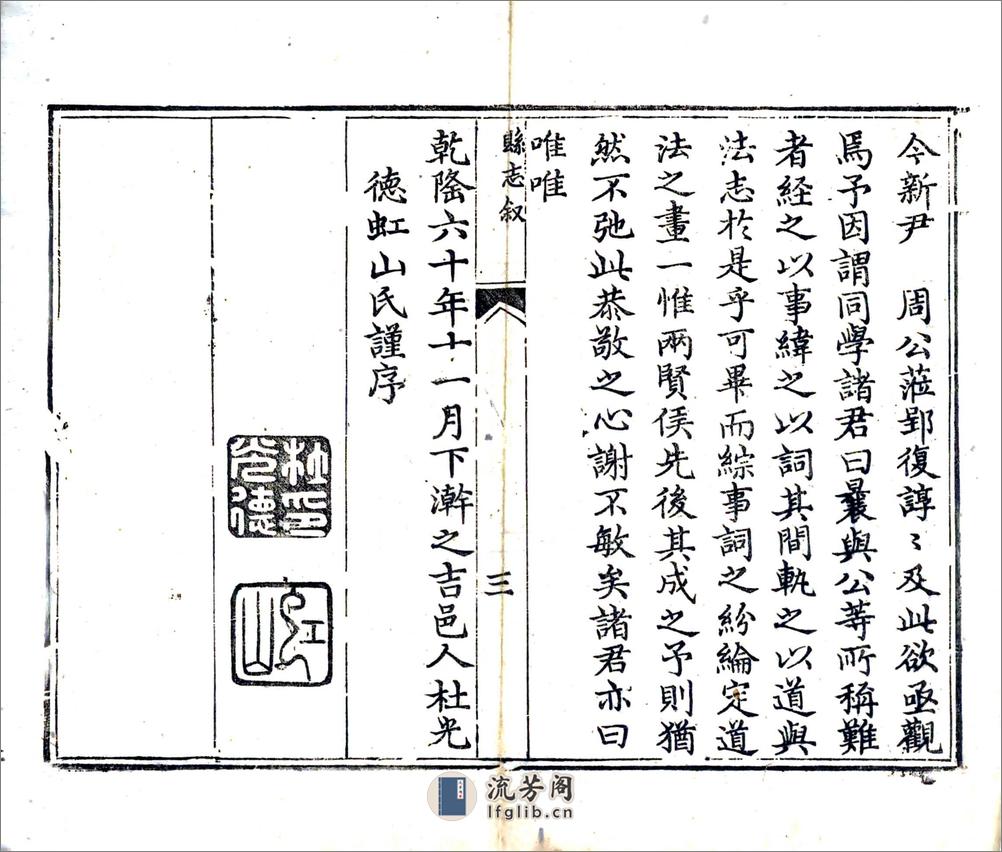 今新尹　周公蒞郢復諄〻及此欲亟觀
焉予因謂同學諸君曰曩與公等所稱難
者経之以事緯之以詞其間軌之以道與
法志於是乎可畢而綜事詞之紛綸定道
法之畫一惟兩賢侯先後其成之予則猶
然不弛此恭敬之心謝不敏矣諸君亦曰
唯唯
縣志叙
三
乾隆六十年十一月下澣之吉邑人杜光
德虹山氏謹序
杜光德印
虹山
流芳阁
lfglib.cn